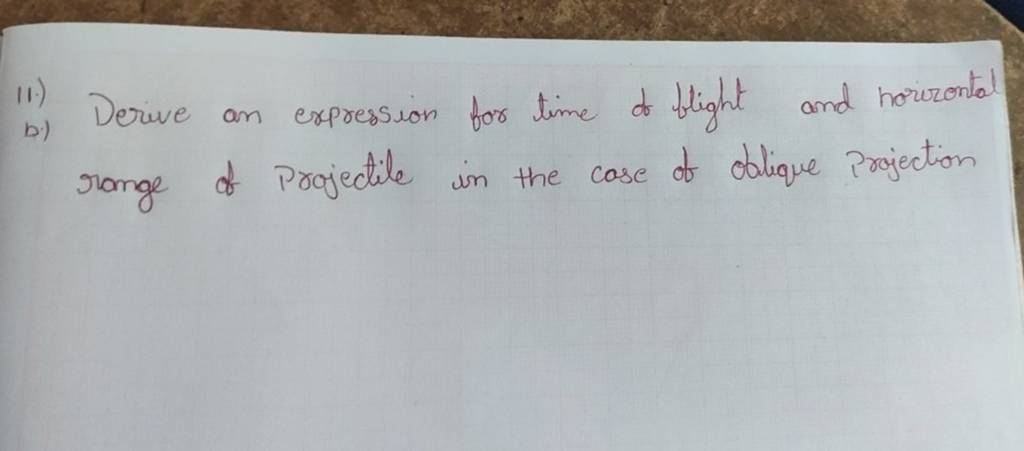 11.)
b.) Derive an expression for time of flight and horizontal
range of Projectile in the case of oblique Projection